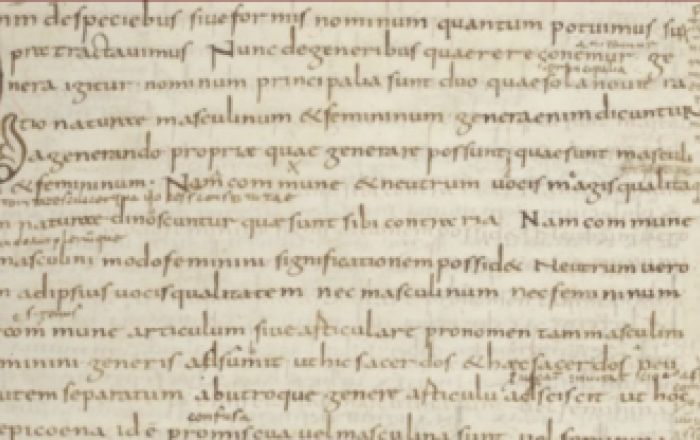 nim despeciebus siueformis nominum quantum potuimus
prætractauimus Nunc degeneribus quaerere conemur ge
nera igitur nominum principalia sunt duo quae sola nouit ra
tio naturae masculinum &femininum generaenim dicuntur
a generando propriæ quae generare possunt; quaesunt mascul
&femininum. Nam commune &neutrum uocis magis qualita
naturae dinoscuntur quæ sunt sibi contræria Nam commune
masculini modo feminini significationem possid& Neutrum uero
adipsius uocisqualitatem nec masculinum nec femininum
commune articulum siue articulare pronomen tam masculini
minini generis adsumit ut hic sacerdos &haec sacerdos
utem separatum ab utroque genere articulū adsciscit ut hoc
confusa
epicoena id ē promiscua uel masculina sunt